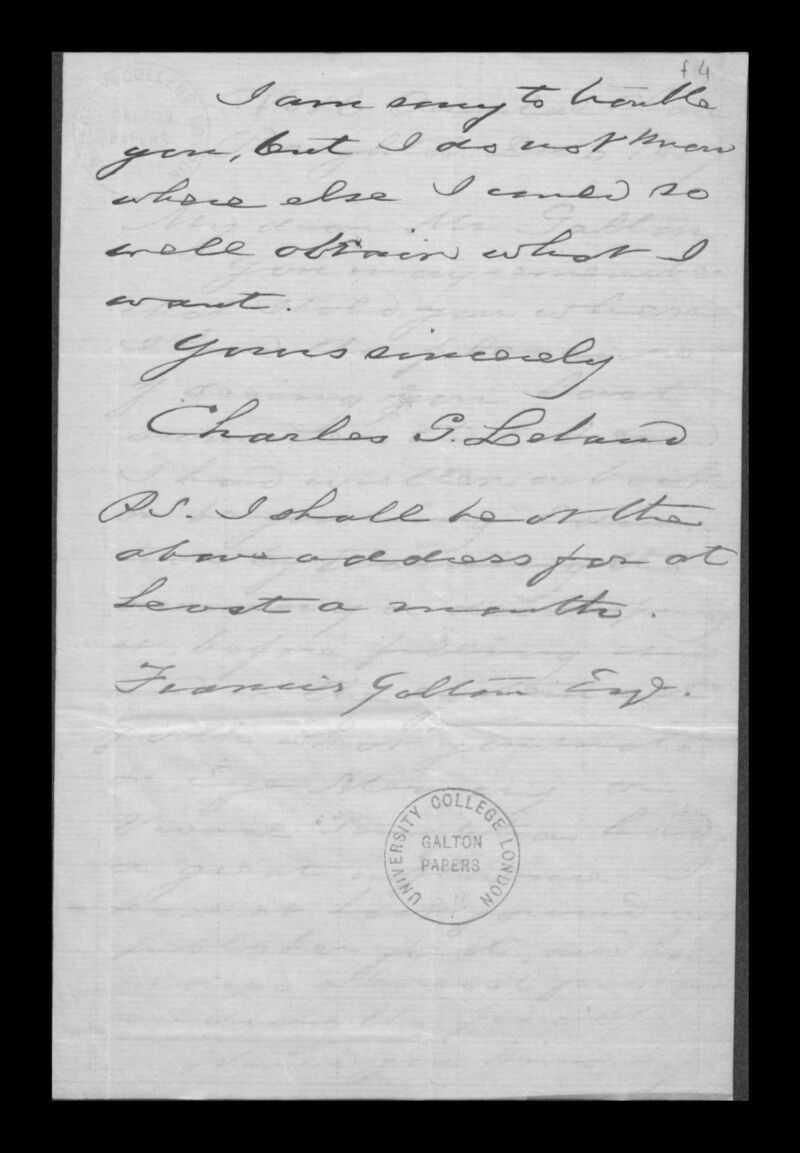 f 4
I am sorry to trouble
you, but I do not know
where else I could so
well obtain what I
want.
Yours sincerely
Charles G. Leland
P.S. I shall be at the
above address for at
least a month.
Francis Galton Esq.
UNIVERSITY COLLEGE LONDON
GALTON
PAPERS